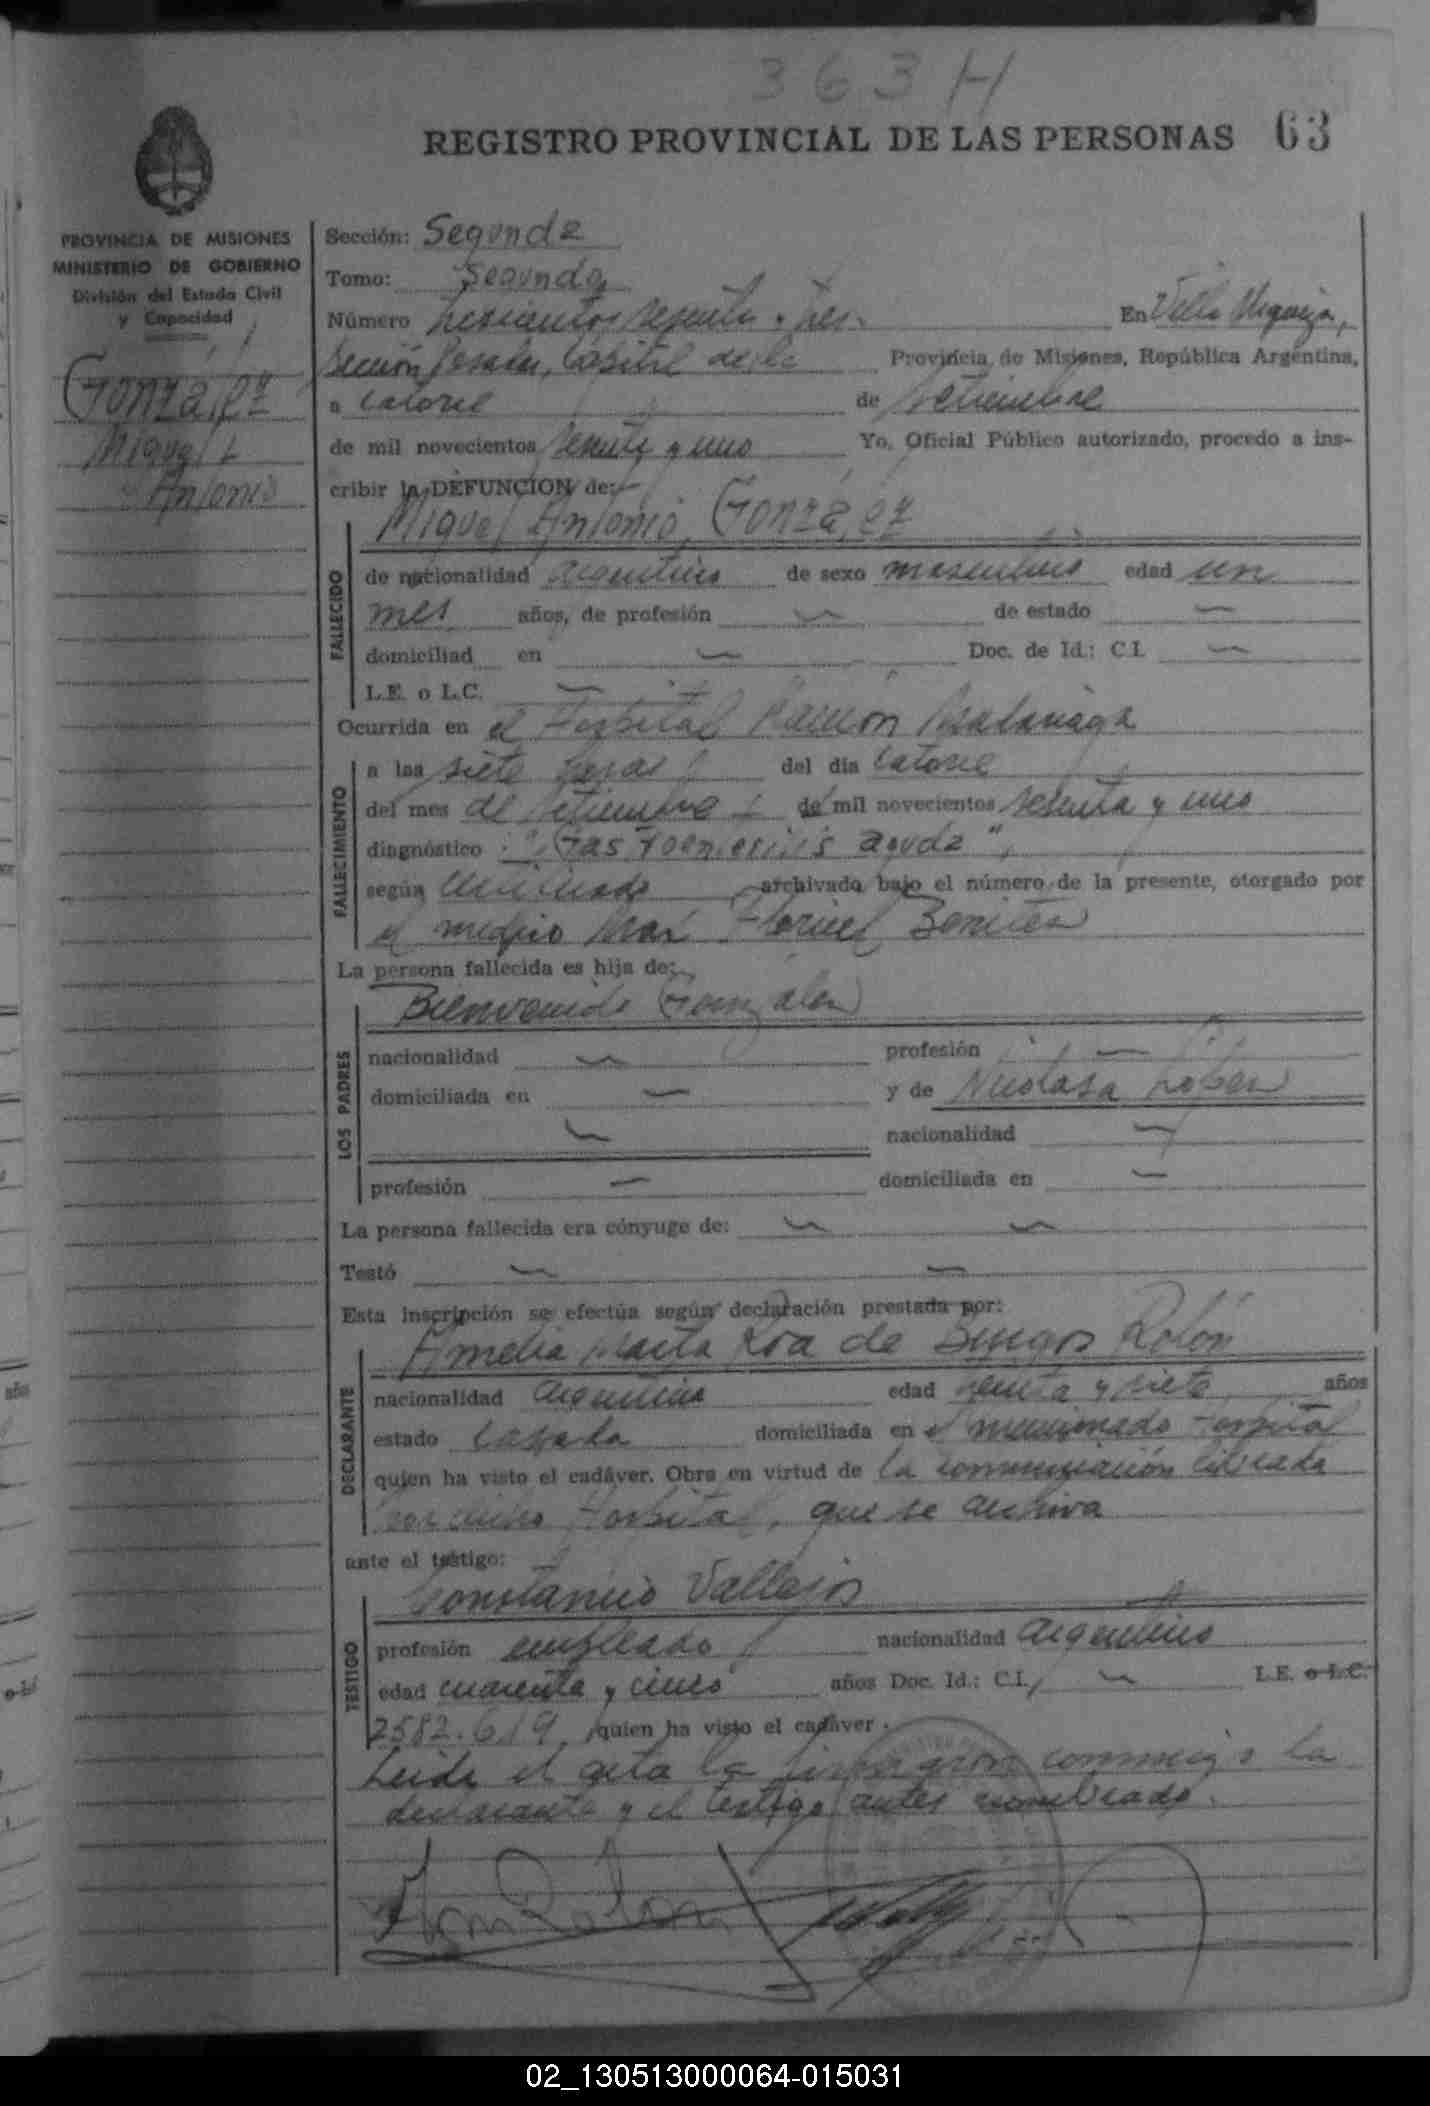 363 H
REGISTRO PROVINCIAL DE LAS PERSONAS 63
PROVINCIA DE MISIONES
MINISTERIO DE GOBIERNO
División del Estado Civil
y Capacidad
González
Miguel
Antonio
Sección: Segunda
Tomo: Segundo
Número trescientos sesenta y tres. En Villa Urquiza,
Sección Posadas, Capital de la Provincia de Misiones, República Argentina,
a catorce de setiembre
de mil novecientos sesenta y uno Yo, Oficial Público autorizado, procedo a ins-
cribir la DEFUNCION de:
Miguel Antonio González
FALLECIDO
de nacionalidad argentino de sexo masculino edad un
mes años, de profesión — de estado —
domiciliad en — Doc. de Id.: C.I. —
L.E. o L.C. —
Ocurrida en el Hospital Ramón Madariaga
FALLECIMIENTO
a las siete horas del día catorce
del mes de setiembre de mil novecientos sesenta y uno
diagnóstico : "Gastroenteritis aguda",
según certificado archivado bajo el número de la presente, otorgado por
el médico Floriel Benítez
La persona fallecida es hija de:
LOS PADRES
Bienvenido González
nacionalidad — profesión —
domiciliada en — y de Nicolasa López
— nacionalidad —
profesión — domiciliada en —
La persona fallecida era cónyuge de: — —
Testó — —
Esta inscripción se efectúa según declaración prestada por:
DECLARANTE
Amelia Marta Roa de Burgos Rolón
nacionalidad argentina edad treinta y siete años
estado casada domiciliada en el mencionado Hospital
quien ha visto el cadáver. Obra en virtud de la comunicación librada
por dicho Hospital, que se archiva
ante el testigo:
TESTIGO
Constancio Vallejos
profesión empleado nacionalidad argentino
edad cuarenta y cinco años Doc. Id.: C.I. — L.E. o L.C.
2582.619 quien ha visto el cadáver.
Leída el acta la firmaron conmigo la
declarante y el testigo antes nombrado.
02_130513000064-015031